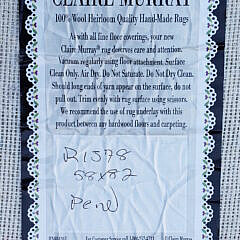 CLAIRE MURRAY
100% Wool Heirloom Quality Hand-Made Rugs
As with all fine floor coverings, your new
Claire Murray® rug deserves care and attention.
Vacuum regularly using floor attachment. Surface
Clean Only. Air Dry. Do Not Saturate. Do Not Dry Clean.
Should long ends of yarn appear on the surface, do not
pull out. Trim evenly with rug surface using scissors.
We recommend the use of rug underlay with this
product between any hardwood floors and carpeting.
R1578
58x82
For Customer Service call
© Claire Murray